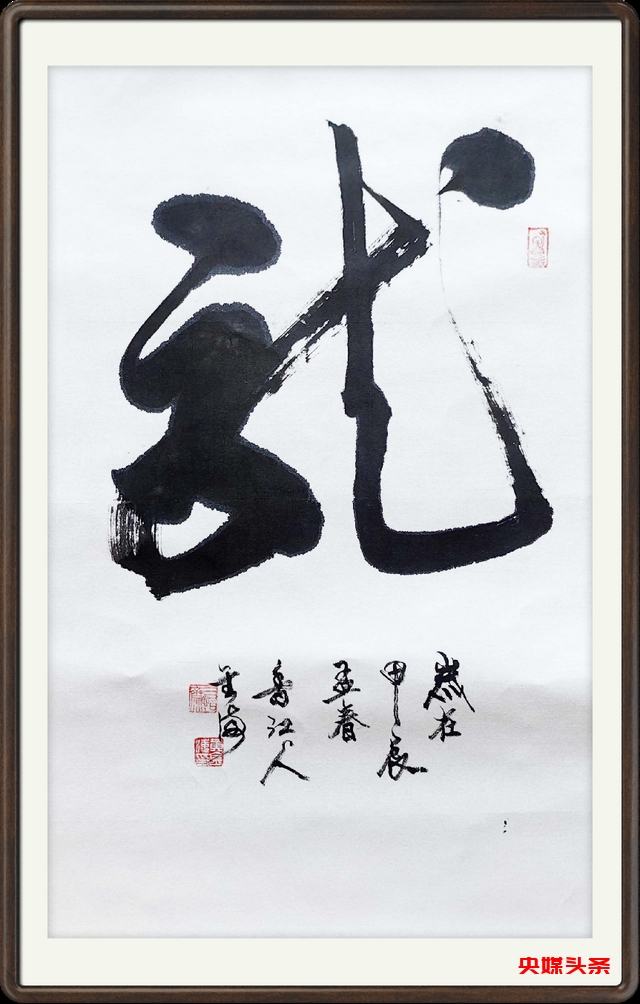 龍
歲在
甲辰
孟春
香江人
央媒头条